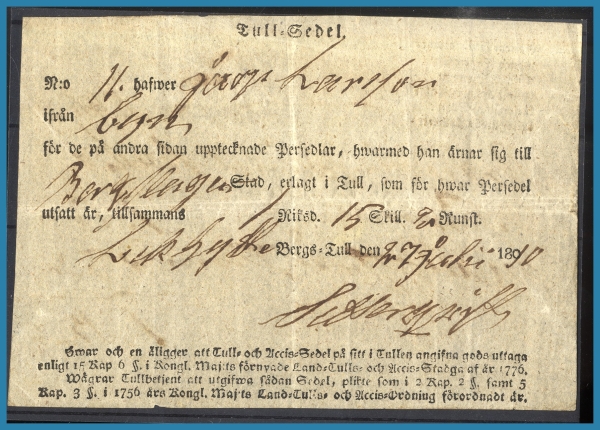 Tull-Sedel.
N:o 11. hafwer Larsson
ifrån Byn
för de på andra sidan upptecknade Persedlar, hwarmed han ärnar sig till
Bergslagen Stad, erlagt i Tull, som för hwar Persedel
utsatt är, tillsammans Riksd. 15 Skill. 2 Runst.
Bergs-Tull den 27 Juli 1810
Hwar och en åligger att Tull- och Accis-Sedel på sitt i Tullen angifna gods uttaga
enligt 15 Kap 6 §. i Kongl. Maj:ts förnyade Land-Tulls- och Accis-Stadga af år 1776.
Wägrar Tullbetjent att utgifwa sådan Sedel, plikte som i 2 Kap. 2 §. samt 5
Kap. 3 §. i 1756 års Kongl. Maj:ts Land-Tulls- och Accis-Ordning förordnadt är.